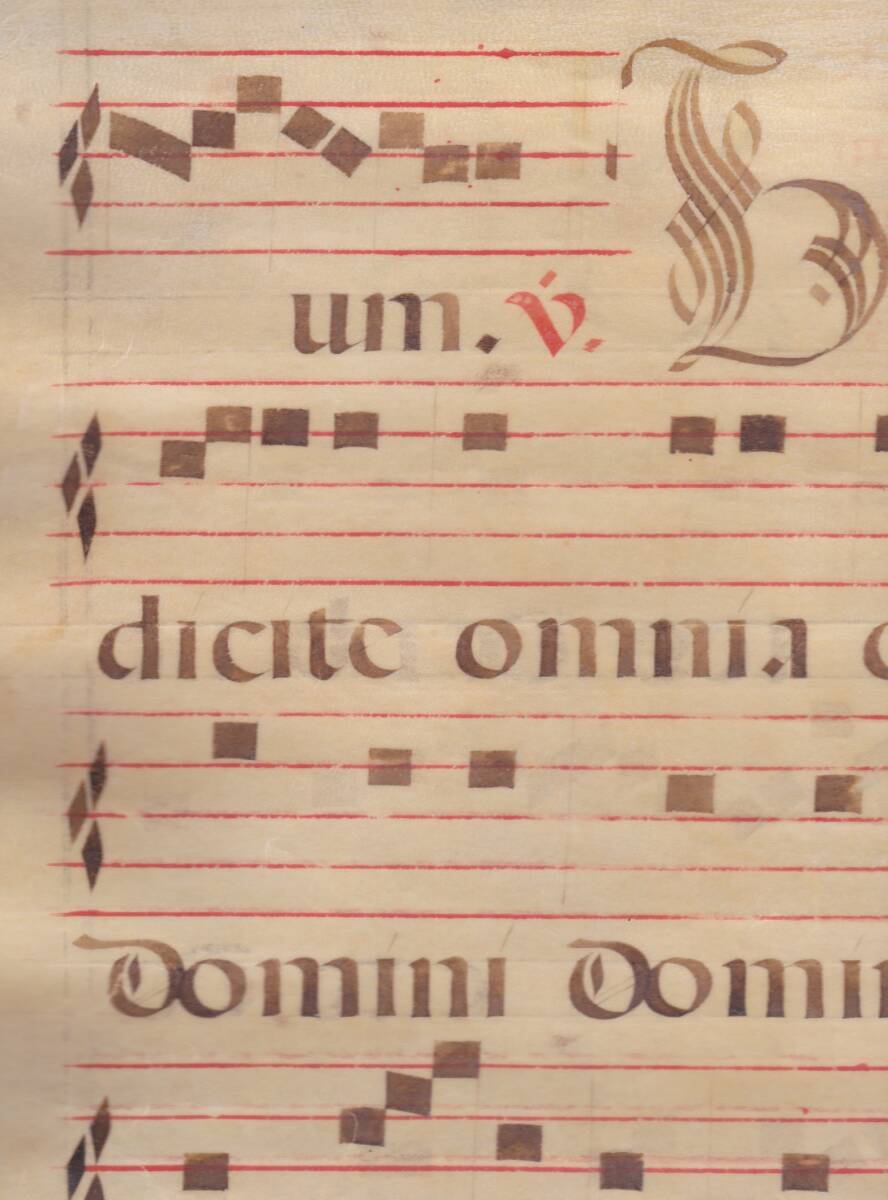 um. v. B
dicite omnia
Domini Domin